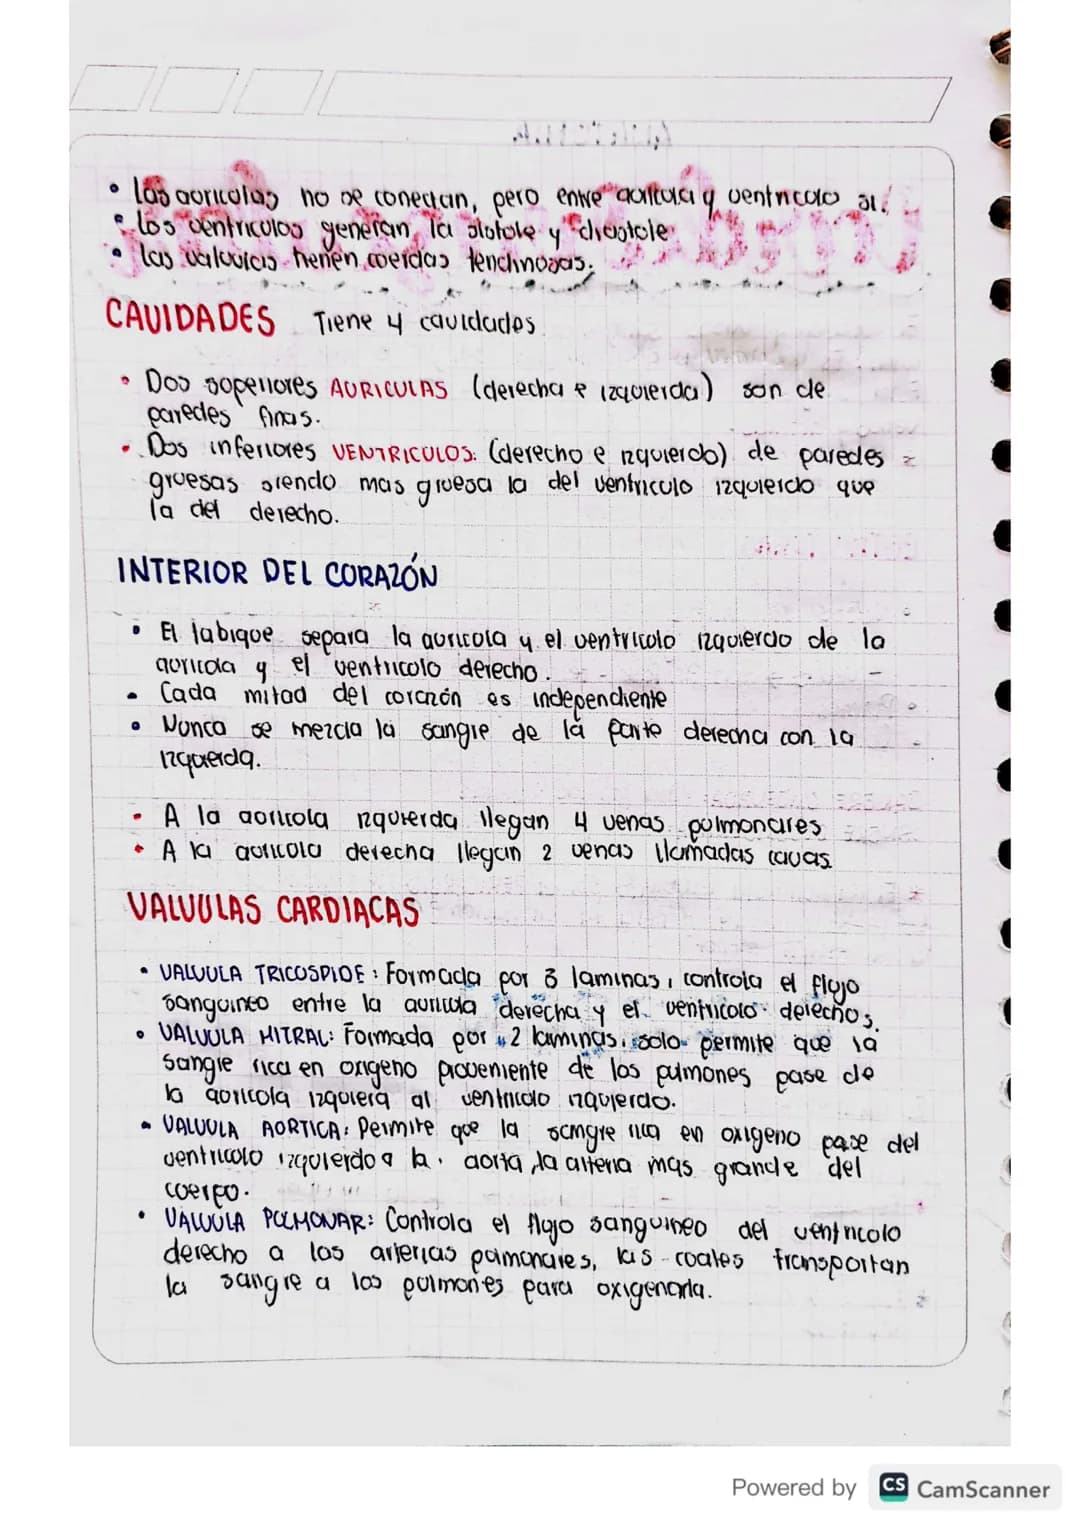 • Las auriculas no se conectan, pero entre auricula y ventriculo si!
• Los ventriculos generan la sistole y diastole
• las valvulas tienen cuerdas tendinosas.
CAVIDADES Tiene 4 cavidades
• Dos superiores AURICULAS (derecha e izquierda) son de
paredes finas.
• Dos inferiores VENTRICULOS: (derecho e izquierdo) de paredes
gruesas siendo mas gruesa la del ventriculo izquierdo que
la del derecho.
INTERIOR DEL CORAZÓN
• El tabique separa la auricola y el ventriculo izquierdo de la
auricola y el ventriculo derecho.
• Cada mitad del corazón es independiente
• Nunca se mezcla la sangre de la parte derecha con la
izquierda.
• A la auricola izquierda llegan 4 venas pulmonares
• A la auricola derecha llegan 2 venas llamadas cavas
VALVULAS CARDIACAS
• VALVULA TRICUSPIDE: Formada por 3 laminas, controla el flujo
sanguineo entre la auricula derecha y el ventriculo derechos.
• VALVULA MITRAL: Formada por 2 laminas, solo permite que la
sangre rica en oxigeno proveniente de los pulmones pase de
la auricola izquiera al ventriculo izquierdo.
• VALVULA AORTICA: Permite que la sangre rica en oxigeno pase del
ventriculo izquierdo a la aorta, la arteria mas grande del
cuerpo.
• VALVULA PULMONAR: Controla el flujo sanguineo del ventriculo
derecho a las arterias pulmonares, las cuales transportan
la sangre a los pulmones para oxigenarla.
Powered by CS CamScanner